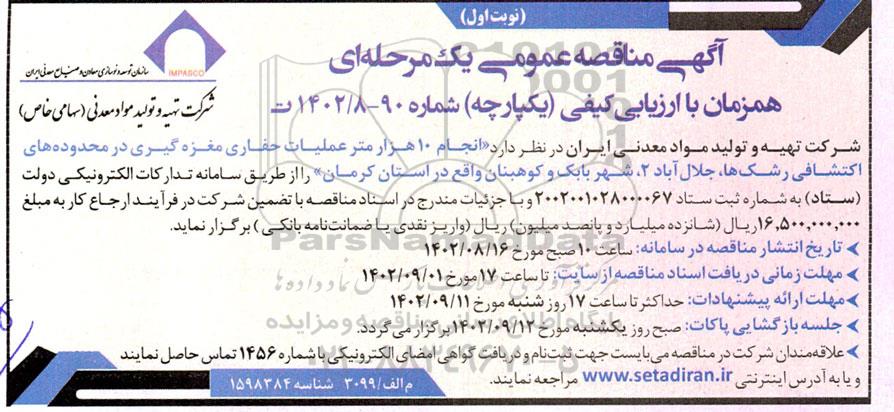 (نوبت اول)
آگهی مناقصه عمومی یک مرحله‌ای
همزمان با ارزیابی کیفی (یکپارچه) شماره ۹۰-۱۴۰۲/۸ ت
IMPASCO
سازمان توسعه و نوسازی معادن و صنایع معدنی ایران
شرکت تهیه و تولید مواد معدنی (سهامی خاص)
شرکت تهیه و تولید مواد معدنی ایران در نظر دارد «انجام ۱۰ هزار متر عملیات حفاری مغزه گیری در محدوده‌های
اکتشافی رشک‌ها، جلال آباد ۲، شهر بابک و کوهبنان واقع در استان کرمان» را از طریق سامانه تدارکات الکترونیکی دولت
(ستاد) به شماره ثبت ستاد ۲۰۰۲۰۰۱۰۲۸۰۰۰۰۶۷ و با جزئیات مندرج در اسناد مناقصه با تضمین شرکت در فرآیند ارجاع کار به مبلغ
۱۶,۵۰۰,۰۰۰,۰۰۰ ریال (شانزده میلیارد و پانصد میلیون) ریال (واریز نقدی یا ضمانت‌نامه بانکی) برگزار نماید.
تاریخ انتشار مناقصه در سامانه: ساعت ۱۰ صبح مورخ ۱۴۰۲/۰۸/۱۶
مهلت زمانی دریافت اسناد مناقصه از سایت: تا ساعت ۱۷ مورخ ۱۴۰۲/۰۹/۰۱
مهلت ارائه پیشنهادات: حداکثر تا ساعت ۱۷ روز شنبه مورخ ۱۴۰۲/۰۹/۱۱
جلسه بازگشایی پاکات: صبح روز یکشنبه مورخ ۱۴۰۲/۰۹/۱۲ برگزار می گردد.
علاقه‌مندان شرکت در مناقصه می‌بایست جهت ثبت‌نام و دریافت گواهی امضای الکترونیکی با شماره ۱۴۵۶ تماس حاصل نمایند
و یا به آدرس اینترنتی www.setadiran.ir مراجعه نمایند.
م الف/۳۰۹۹ شناسه ۱۵۹۸۳۸۴
ParsNamadData